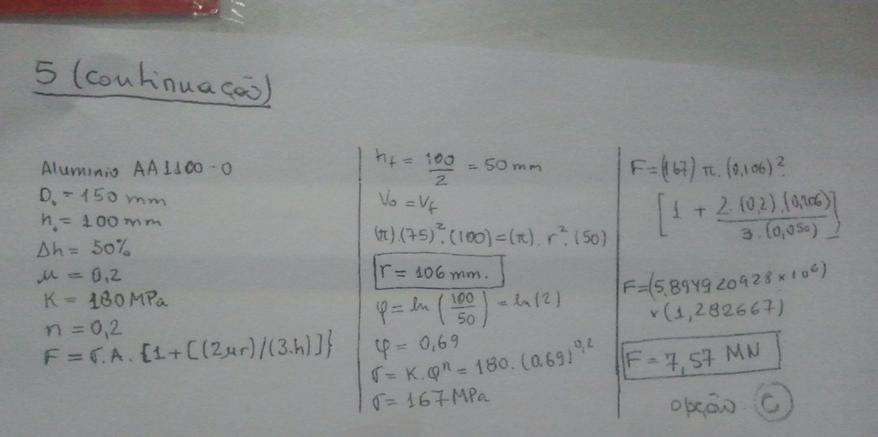 5 (continuação)
Aluminio AA1100-0
D₀ = 150 mm
h₀ = 100 mm
Δh = 50%
μ = 0,2
K = 180 MPa
n = 0,2
F = σ.A.{1+[(2μr)/(3.h)]}
h_f = 100/2 = 50 mm
V₀ = V_f
(π).(75)².(100)=(π).r².(50)
r = 106 mm.
φ = ln(100/50) = ln(2)
φ = 0,69
σ = K.φⁿ = 180.(0,69)^0,2
σ = 167 MPa
F = (167) π.(0,106)².
[1 + 2.(0,2).(0,106)/3.(0,050)]
F = (5,894920928 × 10⁶)
× (1,282667)
F = 7,57 MN
opção C